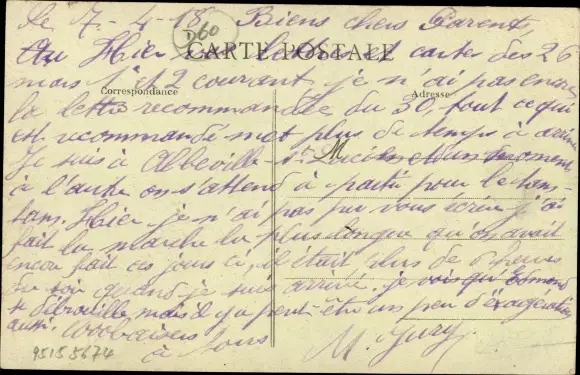 le 7-4-18 Biens chers Parents,
D60
CARTE POSTALE
Hier lettres et cartes des 26
mars 1 et 2 courant, je n'ai pas encore
Correspondance
Adresse
la lettre recommandée du 30, tout ce qui
est recommandé met plus de temps à arriver
Je suis à Abbeville-St Lucien et d'un moment
à l'autre on s'attend à partir pour le
Hier je n'ai pas pu vous écrire j'ai
fait la marche la plus longue qu'on avait
encore fait ces jours ci, il était plus de 6 heures
du soir quand je suis arrivé. je vois qu'Edmond
se débrouille, mais il y a peut-être un peu d'exagération
aussi. Bons baisers
à tous
M. Jury
95155674